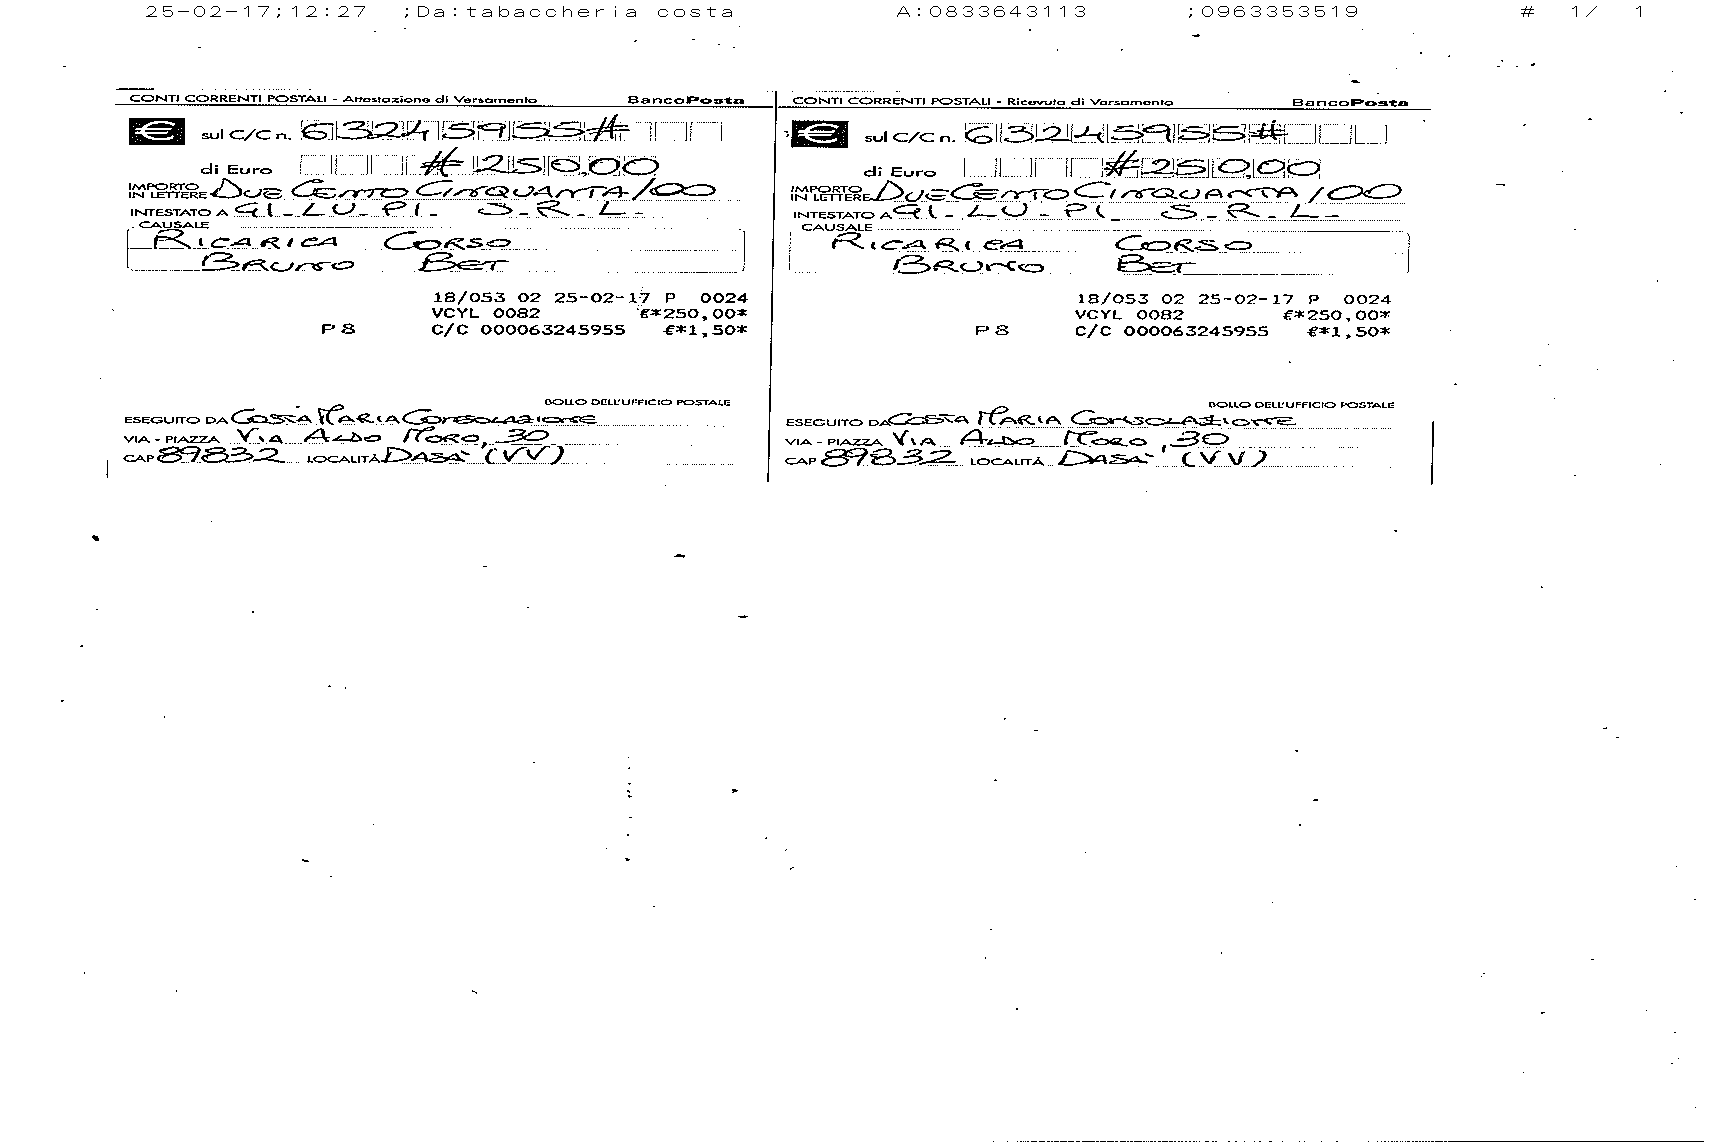 25-02-17;12:27 ;Da:tabaccheria costa A:0833643113 ;0963353519 # 1/ 1
CONTI CORRENTI POSTALI - Attestazione di Versamento BancoPosta
€ sul C/C n. 63245955#
di Euro # 250,00
IMPORTO IN LETTERE DUE CENTO CINQUANTA/00
INTESTATO A GI. LU. PI. S.R.L.
CAUSALE
RICARICA CORSO
BRUNO BET
18/053 02 25-02-17 P 0024
VCYL 0082 €*250,00*
P 8 C/C 000063245955 €*1,50*
BOLLO DELL'UFFICIO POSTALE
ESEGUITO DA COSTA MARIA CONSOLAZIONE
VIA - PIAZZA VIA ALDO MORO, 30
CAP 89832 LOCALITÀ DASA' (VV)
CONTI CORRENTI POSTALI - Ricevuta di Versamento BancoPosta
€ sul C/C n. 63245955#
di Euro # 250,00
IMPORTO IN LETTERE DUECENTO CINQUANTA/00
INTESTATO A GI. LU. PI. S.R.L.
CAUSALE
RICARICA CORSO
BRUNO BET
18/053 02 25-02-17 P 0024
VCYL 0082 €*250,00*
P 8 C/C 000063245955 €*1,50*
BOLLO DELL'UFFICIO POSTALE
ESEGUITO DA COSTA MARIA CONSOLAZIONE
VIA - PIAZZA VIA ALDO MORO, 30
CAP 89832 LOCALITÀ DASA' (VV)